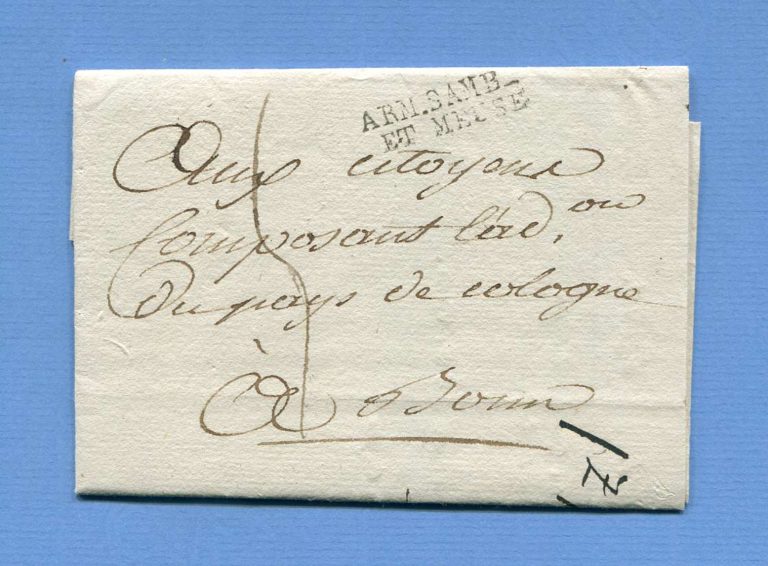 ARM. SAMB_
ET MEUSE
Aux citoyens
Composant l'ad.on
du pays de cologne
à Bonn